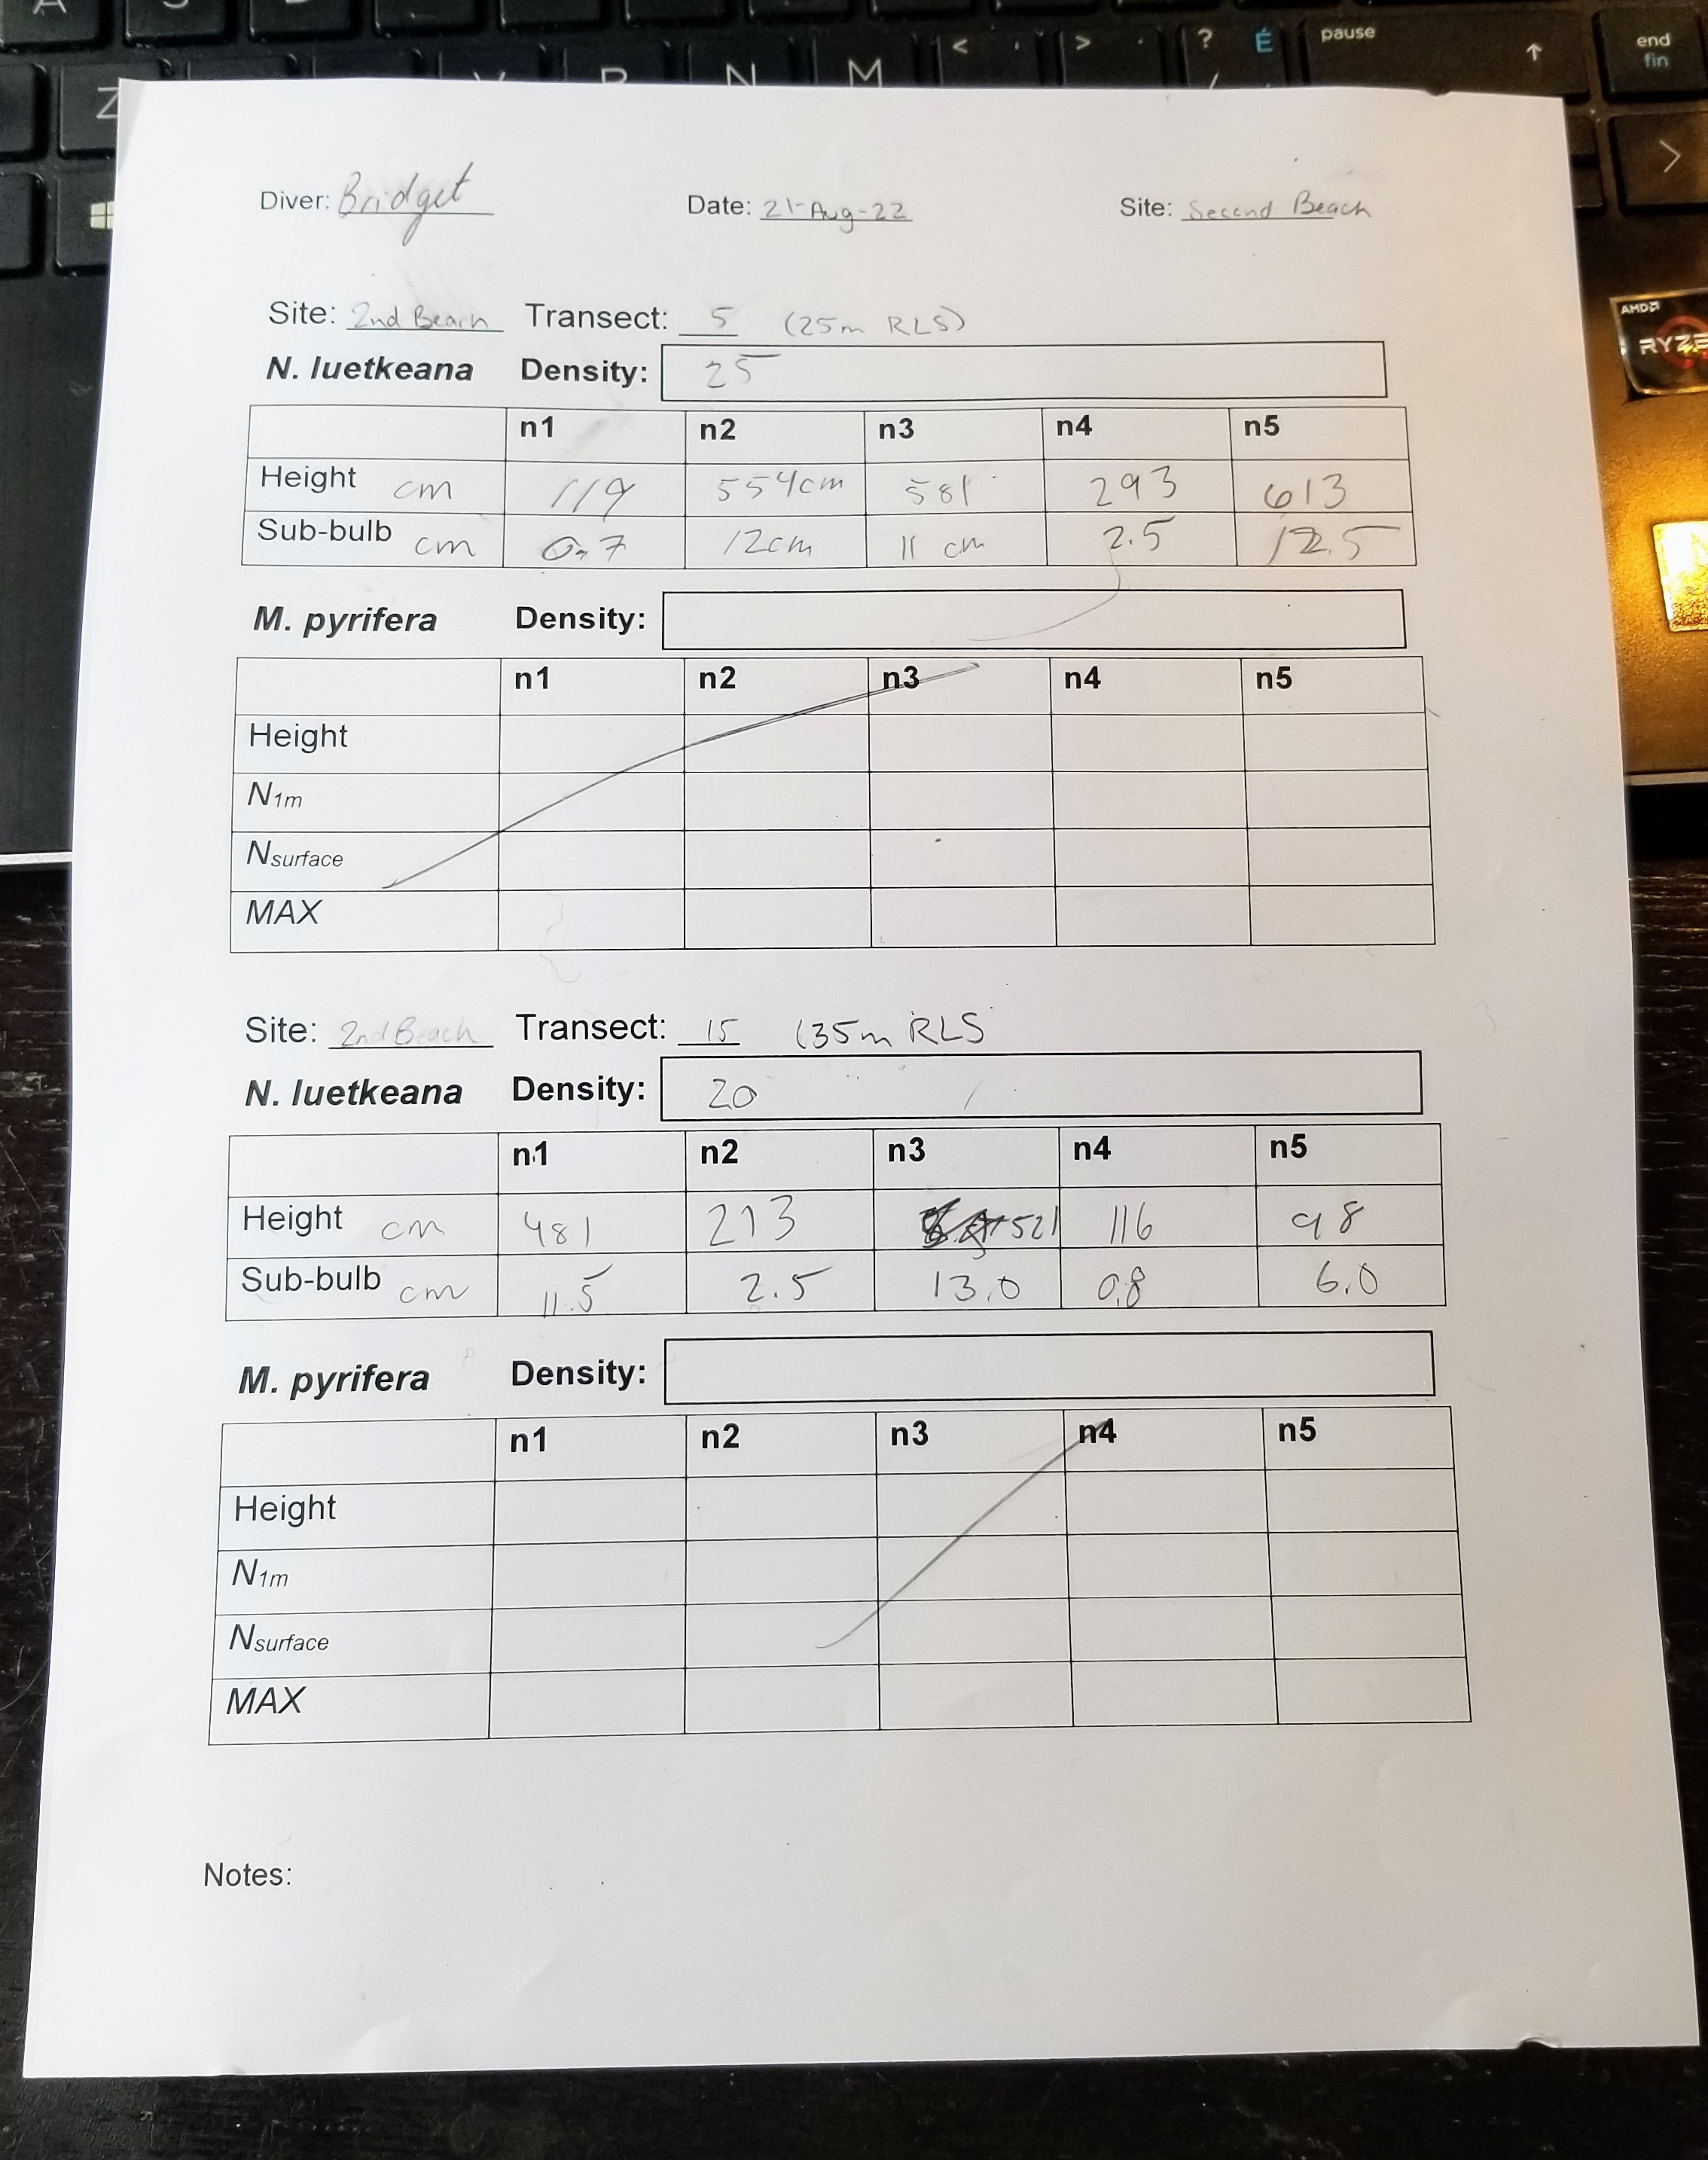 < ' > . ? É pause ↑ end
fin
Z V B N M
AMD
RYZE
Diver: Bridget Date: 21-Aug-22 Site: Second Beach
Site: 2nd Beach Transect: 5 (25m RLS)
N. luetkeana Density: 25
n1 n2 n3 n4 n5
Height cm 119 554cm 581 293 613
Sub-bulb cm 0.7 12cm 11 cm 2.5 12.5
M. pyrifera Density:
n1 n2 n3 n4 n5
Height
N1m
Nsurface
MAX
Site: 2nd Beach Transect: 15 (35m RLS
N. luetkeana Density: 20
n1 n2 n3 n4 n5
Height cm 481 213 521 116 98
Sub-bulb cm 11.5 2.5 13.0 0.8 6.0
M. pyrifera Density:
n1 n2 n3 n4 n5
Height
N1m
Nsurface
MAX
Notes: